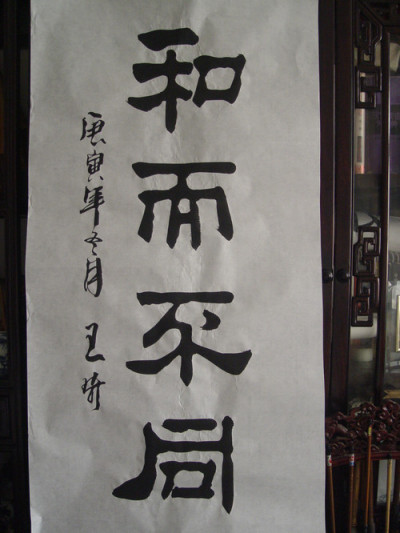 和而不同
庚寅年冬月 王琦